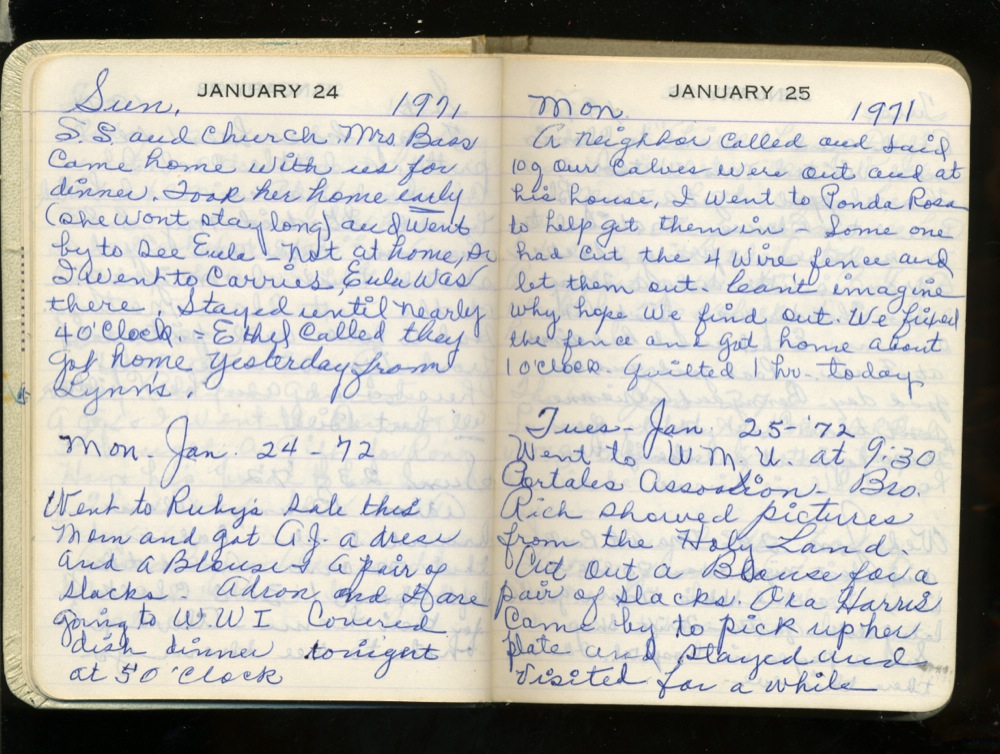 JANUARY 24
Sun. 1971
S.S. and Church. Mrs Bass
Came home with us for
dinner. Took her home early
(she wont stay long) and I went
by to see Eula - Not at home, So
I went to Carries, Eula was
there. Stayed until nearly
4 O'Clock. - Ethel Called they
got home yesterday from
Lynns.
Mon - Jan. 24 - 72
Went to Ruby's Sale this
Morn and got A.J. a dress
and a Blouse & a pair of
slacks. Adron and I are
going to W.W.I Covered
dish dinner tonight
at 5 O'Clock
JANUARY 25
Mon. 1971
A Neighbor Called and said
10 of our Calves were out and at
his house, I went to Ponda Rosa
to help get them in - Some one
had cut the 4 wire fence and
let them out. Can't imagine
why, hope we find out. We fixed
the fence and got home about
1 O'clock. Quilted 1 hr. today
Tues - Jan. 25 - '72
Went to W.M.U. at 9:30
Portales Assosion - Bro.
Rich showed pictures
from the Holy Land.
Cut out a Blouse for a
pair of slacks. Oka Harris
Came by to pick up her
plate and stayed and
visited for a while